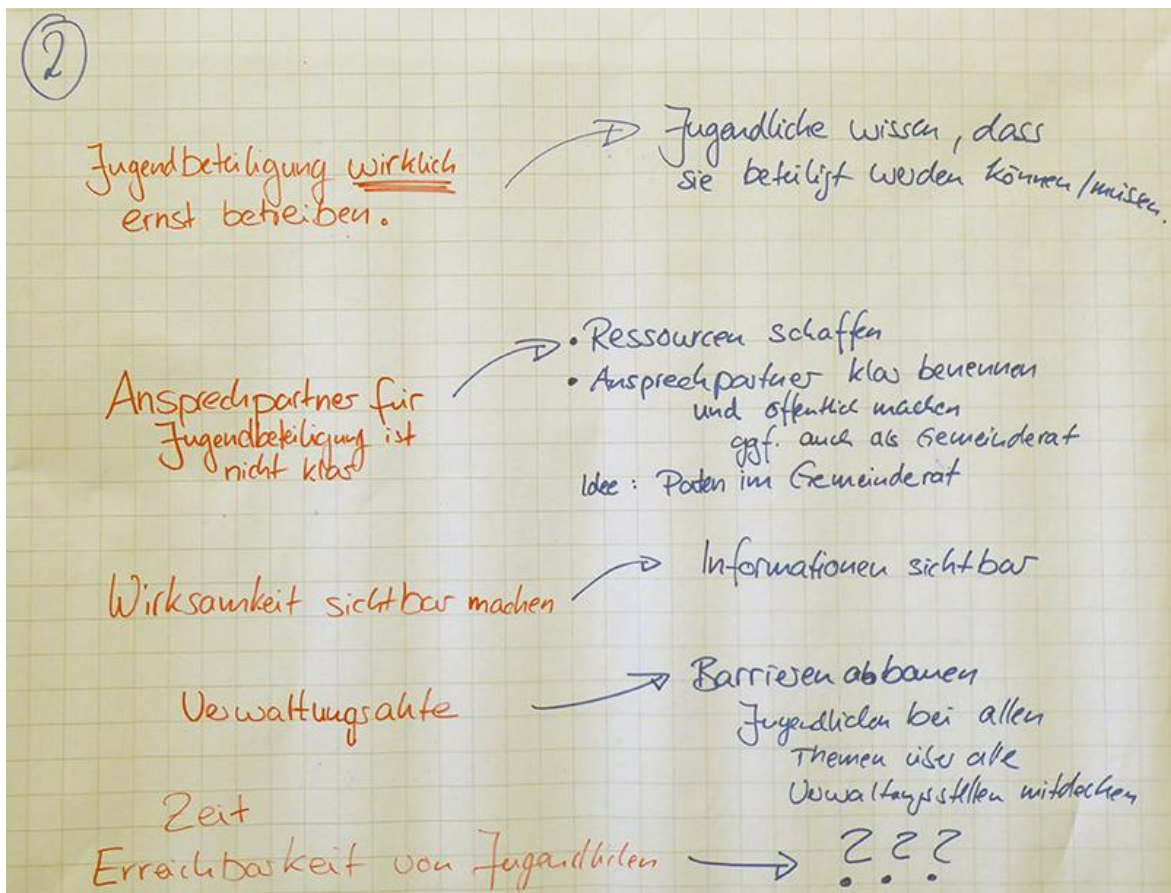 2
Jugendbeteiligung wirklich
ernst betreiben.
Jugendliche wissen, dass
sie beteiligt werden können/müssen.
Ansprechpartner für
Jugendbeteiligung ist
nicht klar
• Ressourcen schaffen
• Ansprechpartner klar benennen
und öffentlich machen
ggf. auch als Gemeinderat
Idee: Paten im Gemeinderat
Wirksamkeit sichtbar machen
Informationen sichtbar
Verwaltungsakte
Barrieren abbauen
Jugendlichen bei allen
Themen über alle
Verwaltungsstellen mitdenken
Zeit
Erreichbarkeit von Jugendlichen
???